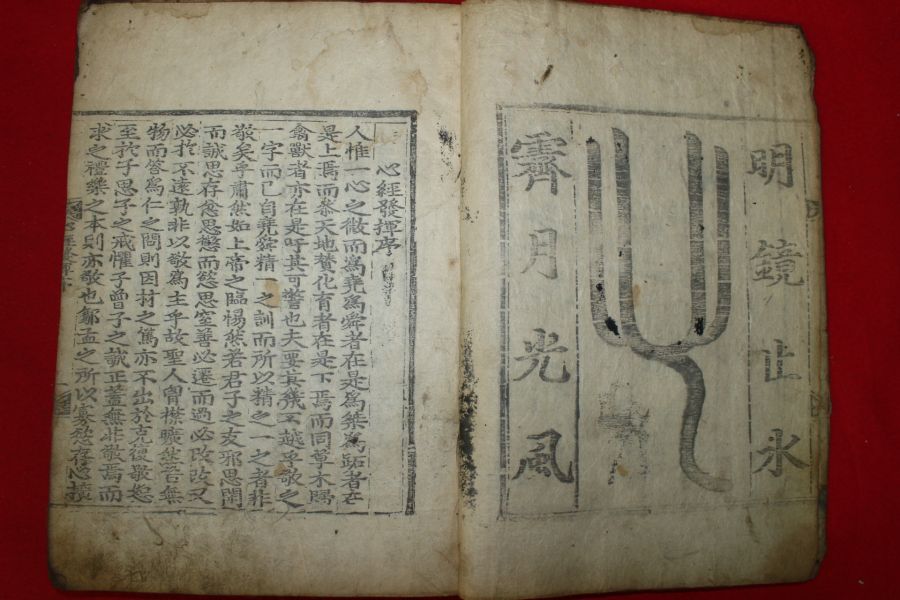 明鏡止水
霽月光風
心經發揮序
人惟一心之微而爲堯爲舜者在是爲桀爲跖者在
是上焉而叅天地賛化育者在是下焉而同草木歸
禽獸者亦在是吁其可警也夫要其幾不越乎敬之
一字而已自堯舜精一之訓而所以精之一之者非
敬矣乎肅然如上帝之臨惕然若君子之友邪思閑
而誠思存忿思懲而慾思窒善必遷而過必改改又
必於不遠孰非以敬爲主乎故聖人胷襟曠然吾無
物而答爲仁之問則因材之篤亦不出於克復敬恕
至於子思子之戒懼子曾子之誠正蓋無非敬焉而
求之禮樂之本則亦敬也鄒孟之所以寡慾存心擴